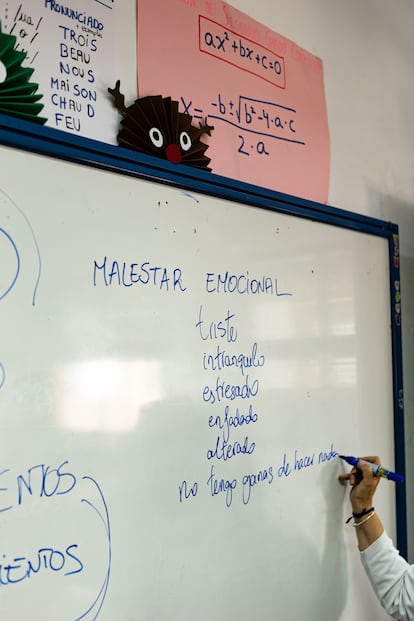 PRONUNCIADO
TROIS
BEAU
NOUS
MAISON
CHAUD
FEU
ax²+bx+c=0
x = -b±√b²-4·a·c
2·a
MALESTAR EMOCIONAL
triste
intranquilo
estresado
enfadado
alterado
no tengo ganas de hacer nada
IENTOS
IENTOS